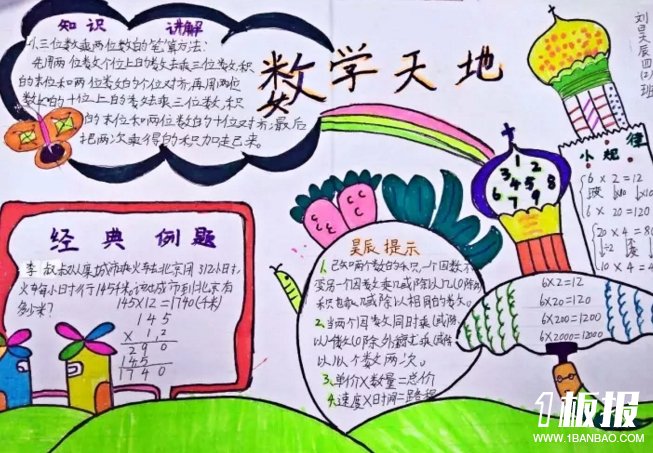 知识 讲解
数学天地
刘昊辰四(2)班
1、三位数乘两位数的笔算方法:
先用两位数个位上的数去乘三位数,积
的末位和两位数的个位对齐;再用两位
数的十位上的数去乘三位数,积
的末位和两位数的十位对齐;最后
把两次乘得的积加起来。
小规律
6×2=12
6×20=120
20×4=80
10×4=4
1 2 3 4 5 8 6 7 9
经典例题
李叔叔从某城市乘火车去北京用312小时,
火车每小时行145千米,该城市到北京有
多少米?
145×12=1740(千米)
145
×1,2
290
145
1740
昊辰提示
1、已知两个数的积,一个因数不
变另一个因数乘几或除以几(0除外
积也乘几或除以相同的数。
2、当两个因数同时乘(或除
以一个数(0除外
以几个数两次。
3、单价×数量=总价
4、速度×时间=路程
6×2=12
6×20=120
6×200=1200
6×2000=12000
1板报
WWW.1BANBAO.COM